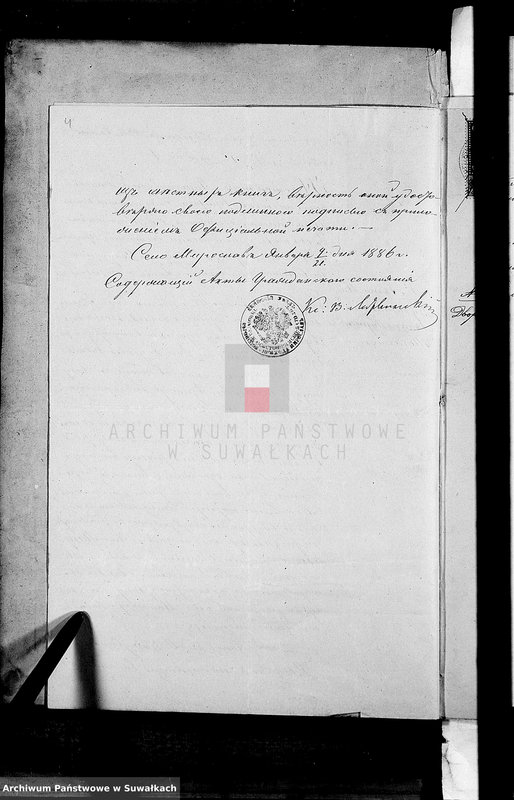 4
изъ мѣстныхъ книгъ, вѣрность оной удосто-
вѣряю своею подлинною подписью съ прило-
женіемъ Офиціальной печати. —
Село Мирославъ Января 9/21 дня 1886 г.
Содержащій Акты Гражданскаго состоянія
Кс: В.
ARCHIWUM PAŃSTWOWE
W SUWAŁKACH
Archiwum Państwowe w Suwałkach